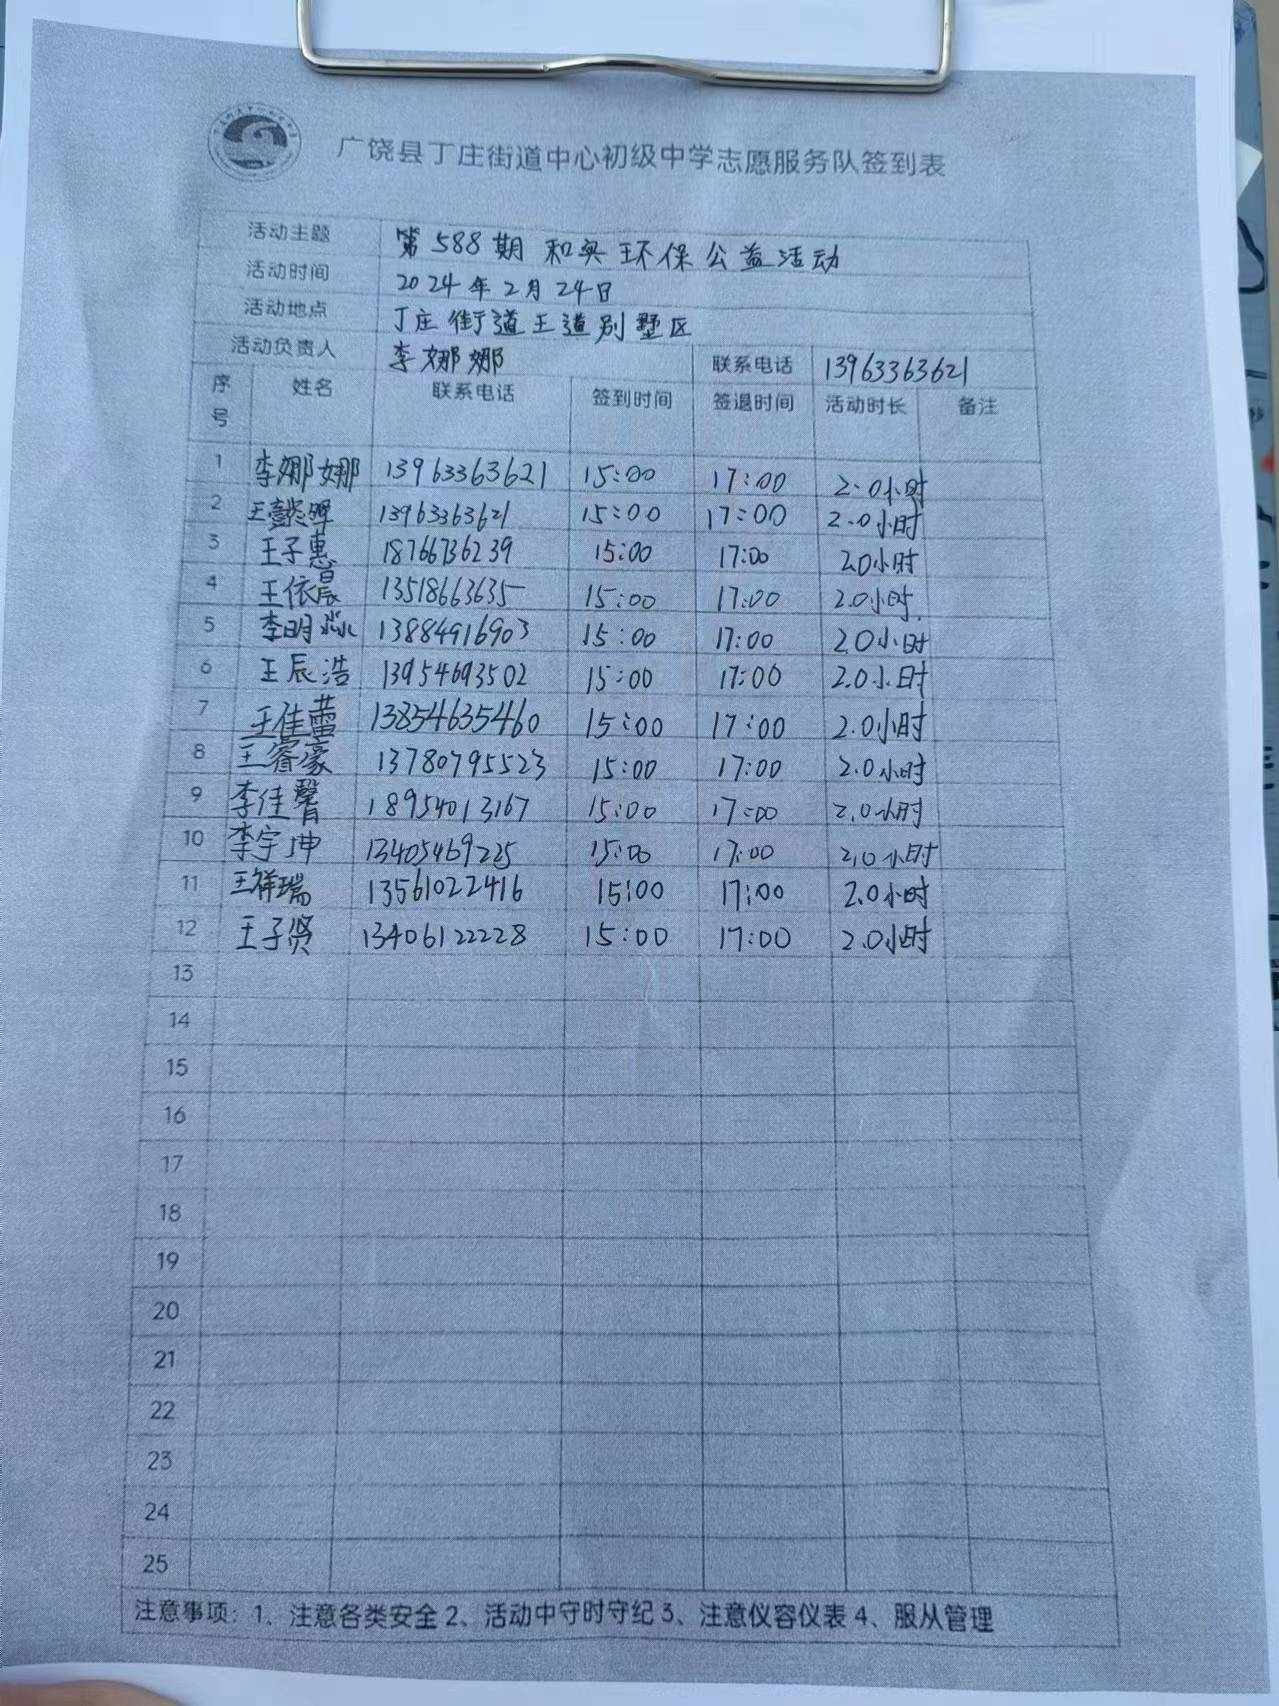 广饶县丁庄街道中心初级中学志愿服务队签到表
活动主题 第588期和奥环保公益活动
活动时间 2024年2月24日
活动地点 丁庄街道王道别墅区
活动负责人 李娜娜 联系电话 13963363621
序号 姓名 联系电话 签到时间 签退时间 活动时长 备注
1 李娜娜 13963363621 15:00 17:00 2.0小时
2 王懿 13963363621 15:00 17:00 2.0小时
3 王子惠 18766736239 15:00 17:00 2.0小时
4 王依晨 13518663635 15:00 17:00 2.0小时.
5 李明淼 13884916903 15:00 17:00 2.0小时
6 王辰浩 13954693502 15:00 17:00 2.0小时
7 王佳蕾 13854635460 15:00 17:00 2.0小时
8 王睿豪 13780795523 15:00 17:00 2.0小时
9 李佳馨 18954013167 15:00 17:00 2.0小时
10 李宇坤 13405469225 15:00 17:00 2.0小时
11 王祥瑞 13561022416 15:00 17:00 2.0小时
12 王子贤 13406122228 15:00 17:00 2.0小时
13
14
15
16
17
18
19
20
21
22
23
24
25
注意事项：1、注意各类安全 2、活动中守时守纪 3、注意仪容仪表 4、服从管理